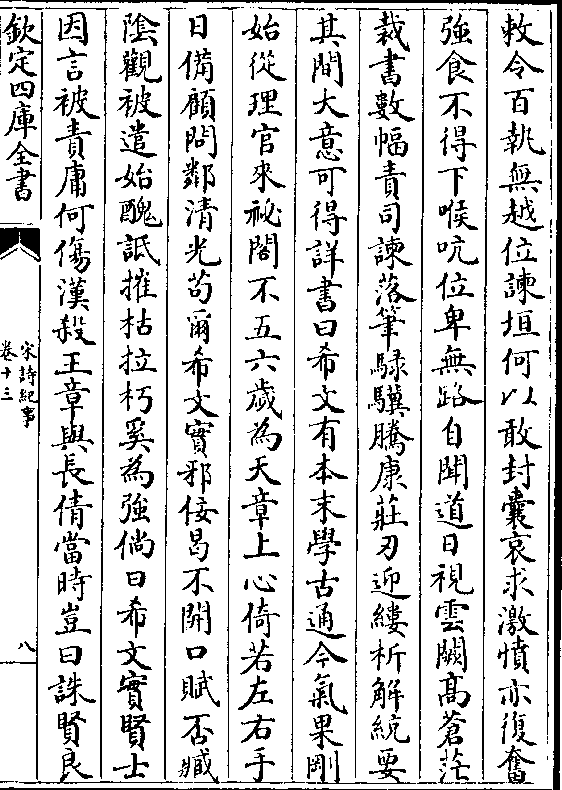 敕令百執無越位諫垣何以敢封囊哀求激憤亦復奮
強食不得下喉吭位卑無路自聞道日視雲闕髙蒼茫
裁書數幅責司諫落筆騄驥騰康莊刃迎縷析解統要
其間大意可得詳書曰希文有本末學古通今氣果剛
始從理官來祕閣不五六歲為天章上心倚若左右手
日備顧問鄰清光苟爾希文實邪佞曷不開口賦否臧
陰觀被遣始醜詆摧枯拉朽奚為強倘曰希文實賢士
因言被責庸何傷漢殺王章與長倩當時豈曰誅賢良
欽定四庫全書
宋詩紀事
卷十三
八